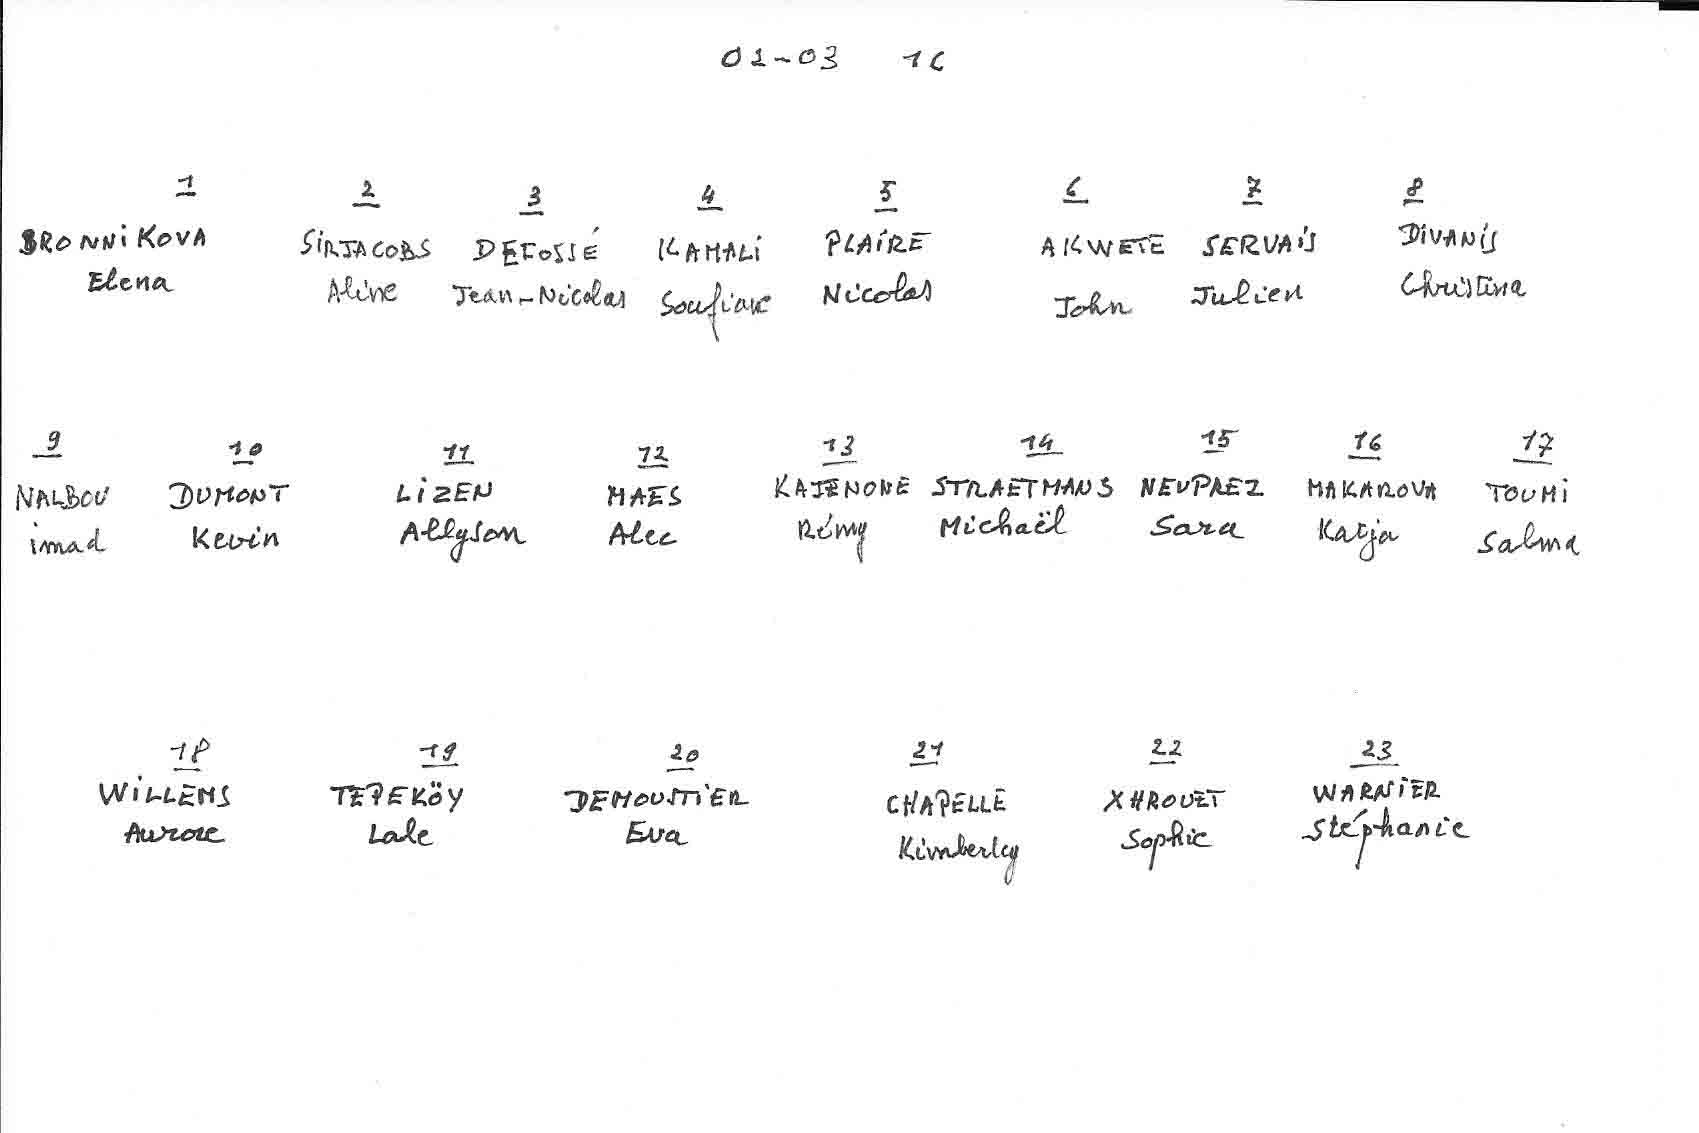 02-03 1C
1 2 3 4 5 6 7 8
BRONNiKOVA SiRJACOBS DEFOSSÉ KAMALi PLAiRE AKWETE SERVAiS DiVANiS
Elena Aline Jean-Nicolas Soufiane Nicolas John Julien Christina
9 10 11 12 13 14 15 16 17
NALBOU DUMONT LiZEN MAES KAJENONE STRAETMANS NEUPREZ MAKAROVA TOUMi
imad Kevin Allyson Alec Rémy Michaël Sara Katja Salma
18 19 20 21 22 23
WiLLEMS TEPEKÖY DEMOUSTiER CHAPELLE XHROUET WARNiER
Aurore Lale Eva Kimberley Sophie Stéphanie